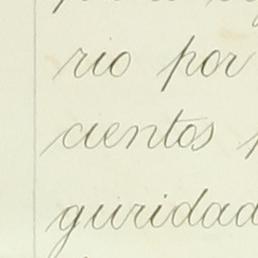 rio por
cientos
guridad